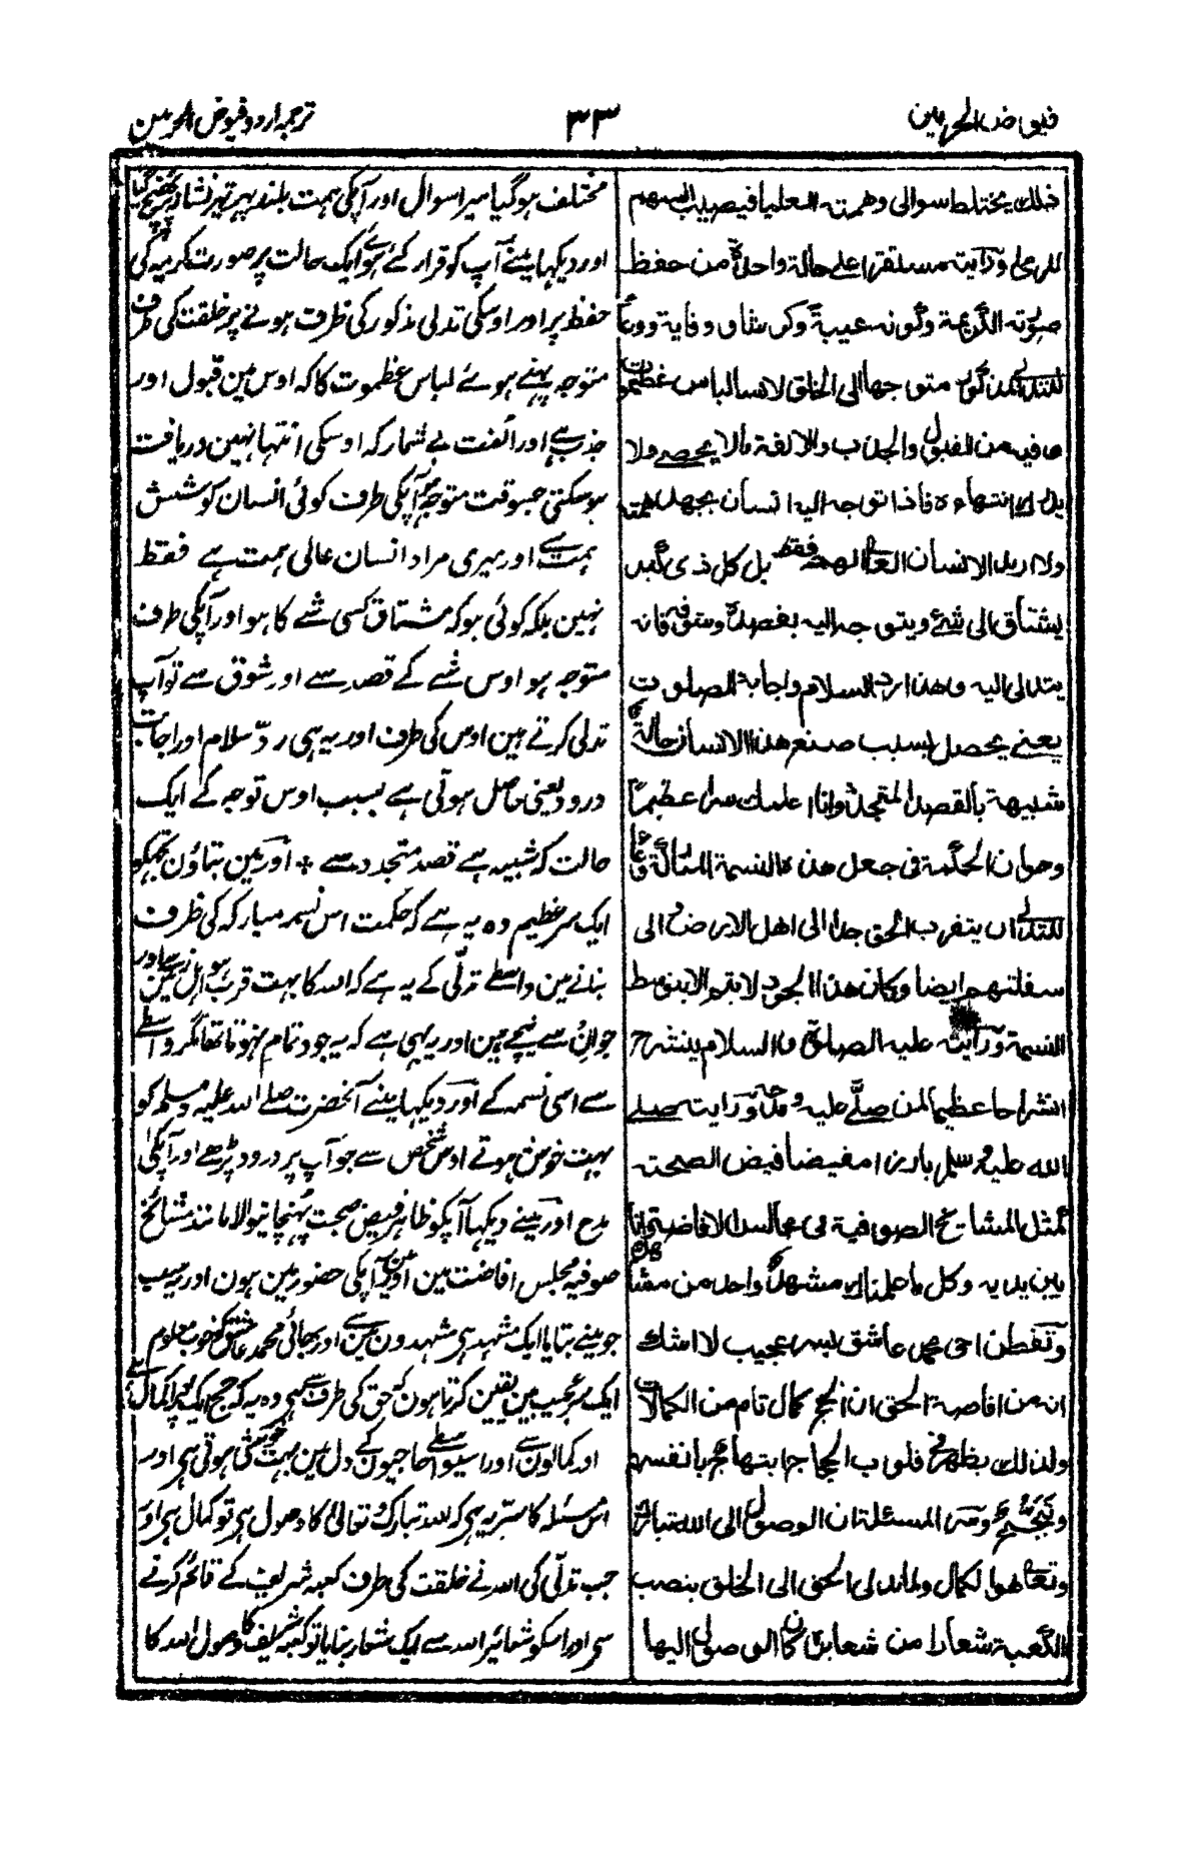 فیوض الحرمین
٣٣
ترجمہ اردو فیوض الحرمین
ذلك يختلط سوالى وهمته العليا فيصيب السهم
للرمى ورايته مستقرا على حالة واحدة من حفظ
صورته الكريمة وكونه عيبة وكرشا ووقاية ووعاء
للتدلى المذكور متوجها الى الخلق لابسا لباس عظموت
ما فيه من القبول والجذب والالفة ما لا يحصے ولا
يدرى انتهاءه فاذا توجه اليه انسان بجهد همته
ولا اريد الانسان العالى الهمة فقط بل كل ذى كبد
يشتاق الى شئ ويتوجه اليه بقصده وشوقه فانه
يتدلى اليه وهذا رد السلام واجابة الصلوت
يعنے يحصل بسبب صنع هذا الانسان حالة
شبيهة بالقصد المتجدد وانا اعلمك سرا عظيما
وهو ان الحكمة فى جعل هذه النسمة المباركة وعاء
للتدلى ان يتقرب الحق جدا الى اهل الارض الى
سفلتهم ايضا وكان هذا الجود لا يتم الا بتوسط
النسمة ورايته عليه الصلوة والسلام ينشرح
انشراحا عظيما لمن صلے عليه و مدحه ورايته صلے
الله عليه وسلم بارزا مفيضا فيض الصحبة
كمثل المشائخ الصوفية فى مجالس الافاضة وانا
بين يديه وكل ما علمناك مشهد واحد من مشاهد
وتفطن اخى محمد عاشق بسر عجيب لا اشك
انه من افاضة الحق ان الحج كمال تام من الكمالات
ولذلك يظهر فى قلوب الحجاج ابتهاج بانفسهم
وتبجح وسر المسئلة ان الوصول الى الله تبارك
وتعالى هو الكمال ولما تدلى الحق الى الخلق بنصب
الكعبة شعارا من شعائره كان الوصول اليها
مختلف ہوگیا میرا سوال اور آپکی ہمت بلند پھر تیر نشانہ پر پہنچ گیا
اور دیکھا مینے آپ کو قرار کئے ہوئے ایک حالت پر صورت کریمہ کی
حفظ پر اور اوسکی تدلی مذکور کی ظرف ہونے پر خلقت کی طرف
متوجہ پہنے ہوئے لباس عظموت کا کہ اوس مین قبول اور
جذب ہے اور الفت بے شمار کہ اوسکی انتہا نہین دریافت
ہوسکتی جسوقت متوجہ ہو آپکی طرف کوئی انسان کوشش
ہمت سے اور میری مراد انسان عالی ہمت ہے فقط
نہین بلکہ کوئی ہو کہ مشتاق کسی شے کا ہو اور آپکی طرف
متوجہ ہو اوس شے کے قصد سے اور شوق سے تو آپ
تدلی کرتے ہین اوس کی طرف اور یہ ہی ردّ سلام اور اجابت
درود یعنی حاصل ہوتی ہے بسبب اوس توجہ کے ایک
حالت کہ شبیہ ہے قصد متجدد سے + اور مین بتاؤن تجھکو
ایک سر عظیم وہ یہ ہے کہ حکمت اس نسمہ مبارکہ کی ظرف
بنانے مین واسطے تدلّی کے یہ ہے کہ اللہ کا بہت قرب ہو اہل زمین سے اور
جو اُن سے نیچے ہین اور یہ بھی ہے کہ یہ جود تمام نہوتا تھا مگر واسطے
سے اسی نسمہ کے اور دیکھا مینے آنحضرت صلے اللہ علیہ وسلم کو
بہت خوش ہوتے اوس شخص سے جو آپ پر درود پڑھے اور آپکی
مدح اور مینے دیکھا آپکو ظاہر فیض صحبت پُہنچانیوالا مانند مشائخ
صوفیہ مجلس افاضت مین اور مین آپکی حضور مین ہون اور یہ سب
جو مینے بتایا ایک مشہد ہی مشہدون مین سے اور بھائی محمد عاشق کو خوب معلوم
ایک سر عجیب مین یقین کرتا ہون کہ حق کی طرف سے ہی وہ یہ کہ حج ایک پورا کمال ہے
اور کمالون سے اور اسیواسطے حاجیون کے دل مین بہت خوشی ہوتی ہی اور
اس مسئلہ کا سرّ یہ ہی کہ اللہ تبارک تعالیٰ کا وصول ہی تو کمال ہی اور
جب تدلّی کی اللہ نے خلقت کی طرف کعبہ شریف کے قائم کرنے
سے اور اسکو شعائر اللہ سے ایک شعار بنایا تو کعبہ شریف کا وصول اللہ کا